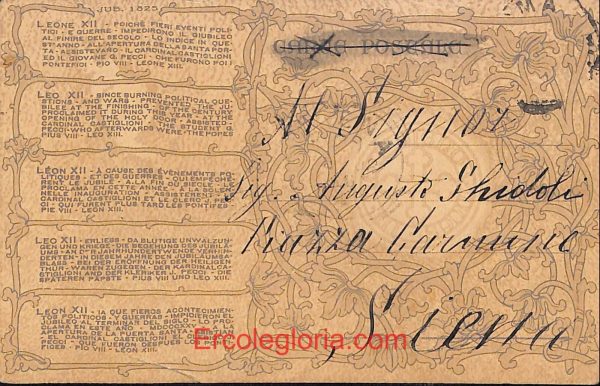 JUB. 1825
LEONE XII - POICHÈ FIERI EVENTI POLI-
TICI - E GUERRE - IMPEDIRONO IL GIUBILEO
AL FINIRE DEL SECOLO - LO INDICE IN QUE-
ST'ANNO - ALL'APERTURA DELLA SANTA POR-
TA - ASSISTEVANO - IL CARDINAL CASTIGLIONI
ED IL GIOVANE G. PECCI - CHE FURONO POI I
PONTEFICI - PIO VIII - LEONE XIII.
LEO XII - SINCE BURNING POLITICAL QUE-
STIONS - AND WARS - PREVENTED THE JU-
BILEE AT THE FINISHING - OF THE CENTURY
PROCLAIMED IT DURING THIS YEAR - AT THE
OPENING OF THE HOLY DOOR - ATTENDED
CARDINAL CASTIGLIONI - THE STUDENT G.
PECCI - WHO AFTERWARDS WERE THE POPES
PIUS VIII - LEO XIII.
LÉON XII - À CAUSE DES ÉVÉNEMENTS PO-
LITIQUES - ET DES GUERRES - QUI EMPÉCHE-
RENT LE JUBILÉ - À LA FIN DU SIÈCLE - LE
PROCLAMA EN CETTE ANNÉE - À LA SOLEN-
NELLE INAUGURATION - ASSISTÈRENT - LE
CARDINAL CASTIGLIONI ET LE CLERC J. PEC-
CI - QUI FURENT PLUS TARD LES PONTIFES
PIE VIII - LÉON XIII.
LEO XII - ERLIESS - DA BLUTIGE UNWALZUN-
GEN UND KRIEGE - DIE BEGEHUNG DES JUBI-
LÄUMS - AN DER JAHRHUNDERTWENDE VERHIN-
DERTEN - IN DIESEM JAHRE DEN JUBILÄUMS-
ABLASS - BEI DER ERÖFFNUNG DER HEILIGEN
THÜR - WAREN ZUGEGEN - DER KARDINAL CA-
STIGLIONI AND DER KLERIKER J. PECCI - DIE
SPÄTEREN PÄPSTE - PIUS VIII UND LEO XIII.
LEON XII - IA QUE FIEROS ACONTECIMIEN-
TOS POLITICOS - Y GUERRAS - IMPIDIERON EL
JUBILEO - AL TERMINAR DEL SIGLO - LO PRO-
CLAMA EN ESTE AÑO - MDCCCXXV - A LA
APERTURA DE LA PUERTA SANTA - ASISTIAN
EL CARDINAL CASTIGLIONI
PECCI - QUE FUERON DESPUES LOS PONTI-
FICES - PIO VIII - LEON XIII.
CARTA POSTALE
Al Signor
Sig. Augusto Ghidoli
Piazza Carmine
Siena
Ercolegloria.com